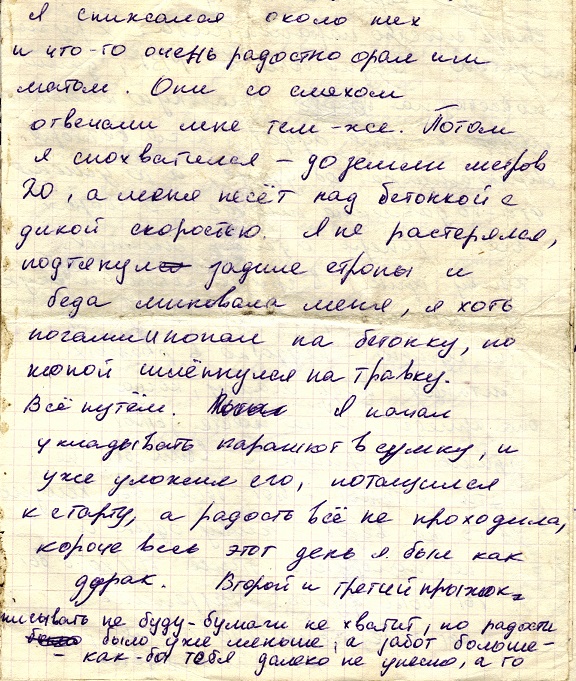 я снижался около них
и что-то очень радостно орал им
матом. Они со смехом
отвечали мне тем-же. Потом
я спохватился - до земли метров
20, а меня несёт над бетонкой с
дикой скоростью. Я не растерялся,
подтянул задние стропы и
беда миновала меня, я хоть
ногами и попал на бетонку, но
жопой шлёпнулся на травку.
Всё путём. Я начал
укладывать парашют в сумку, и
уже уложив его, потащился
к старту, а радость всё не проходила,
короче весь этот день я был как
дурак. Второй и третий прыжок
писывать не буду-бумаги не хватит, но радости
было уже меньше, а забот больше-
- как-бы тебя далеко не унесло, а то